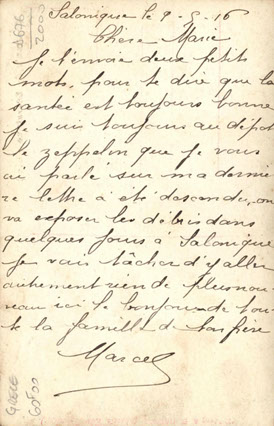 Salonique le 9-5-16
Chère Marie
Je t'envoie deux petits
mots, pour te dire que la
santée est toujours bonne
je suis toujours au dépot
le zeppelin que je vous
ai parlé sur ma derniè
re lettre a été descendu, on
va exposer les débris dans
quelques jours à Salonique
je vais tâcher d'y aller
autrement rien de plus nou
veau ici le bonjour de tou
te la famille ton frère
Marcel
2000
GRECE
60F00